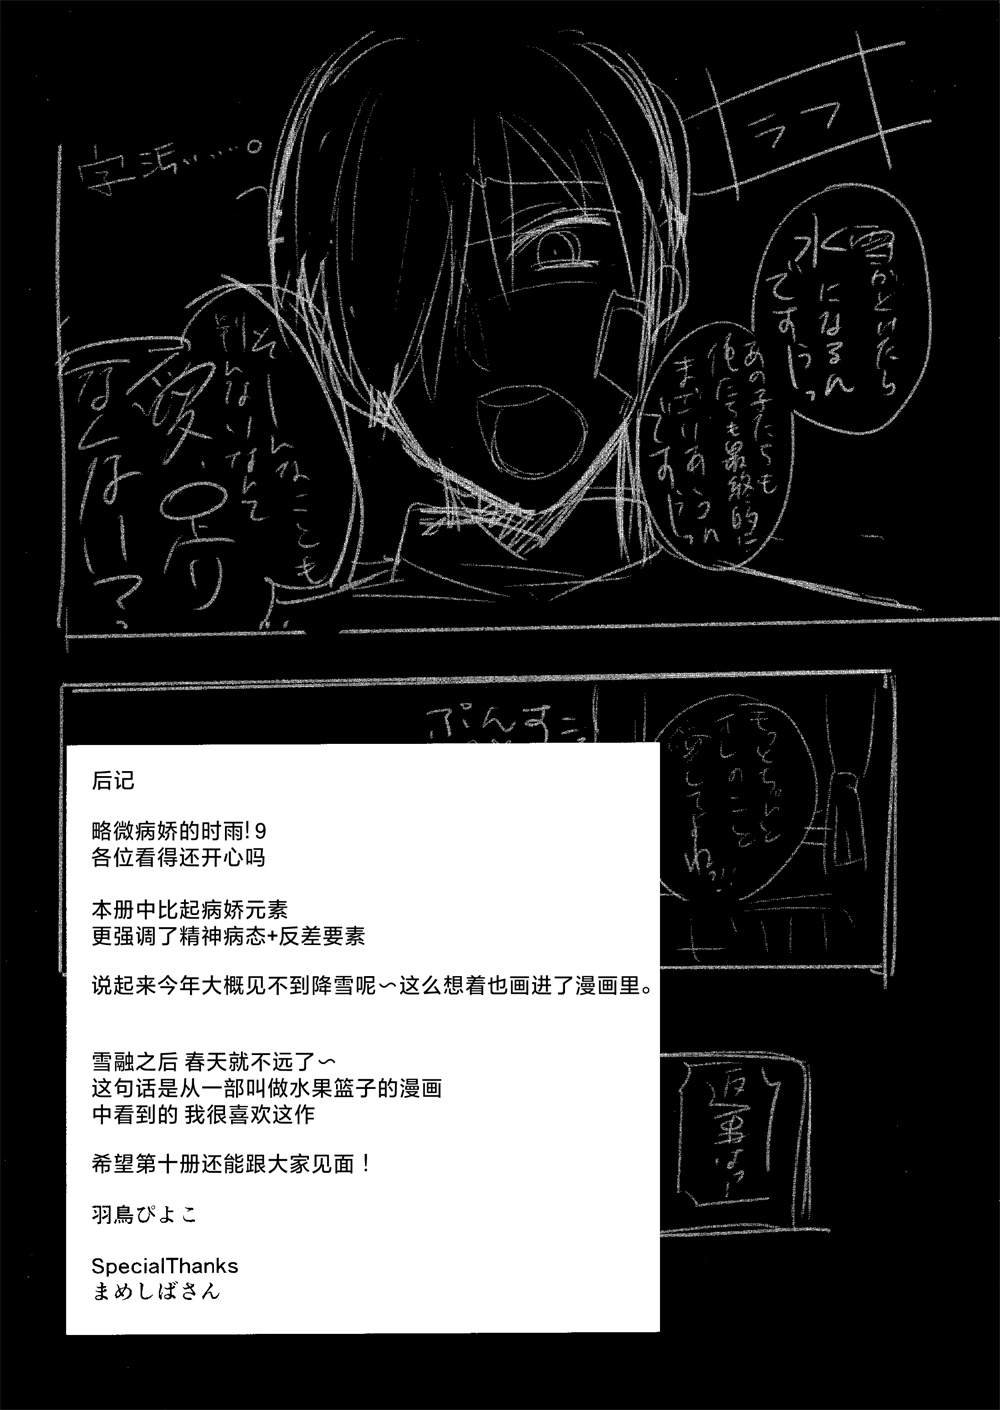 ラフ
字汚い……。
雪がとけたら
水になるん
ですよっっ
あの子たちも
俺たちも最終的に
まざりあうん
ですよっっ
そーんなことも
別んないなんて
愛、足り
なくなーい?
ぷんすこ
もっとちゃんと
オレのこと
愛してよねっ
返事はっ
后记
略微病娇的时雨! 9
各位看得还开心吗
本册中比起病娇元素
更强调了精神病态+反差要素
说起来今年大概见不到降雪呢～这么想着也画进了漫画里。
雪融之后 春天就不远了～
这句话是从一部叫做水果篮子的漫画
中看到的 我很喜欢这作
希望第十册还能跟大家见面！
羽鳥ぴよこ
SpecialThanks
まめしばさん